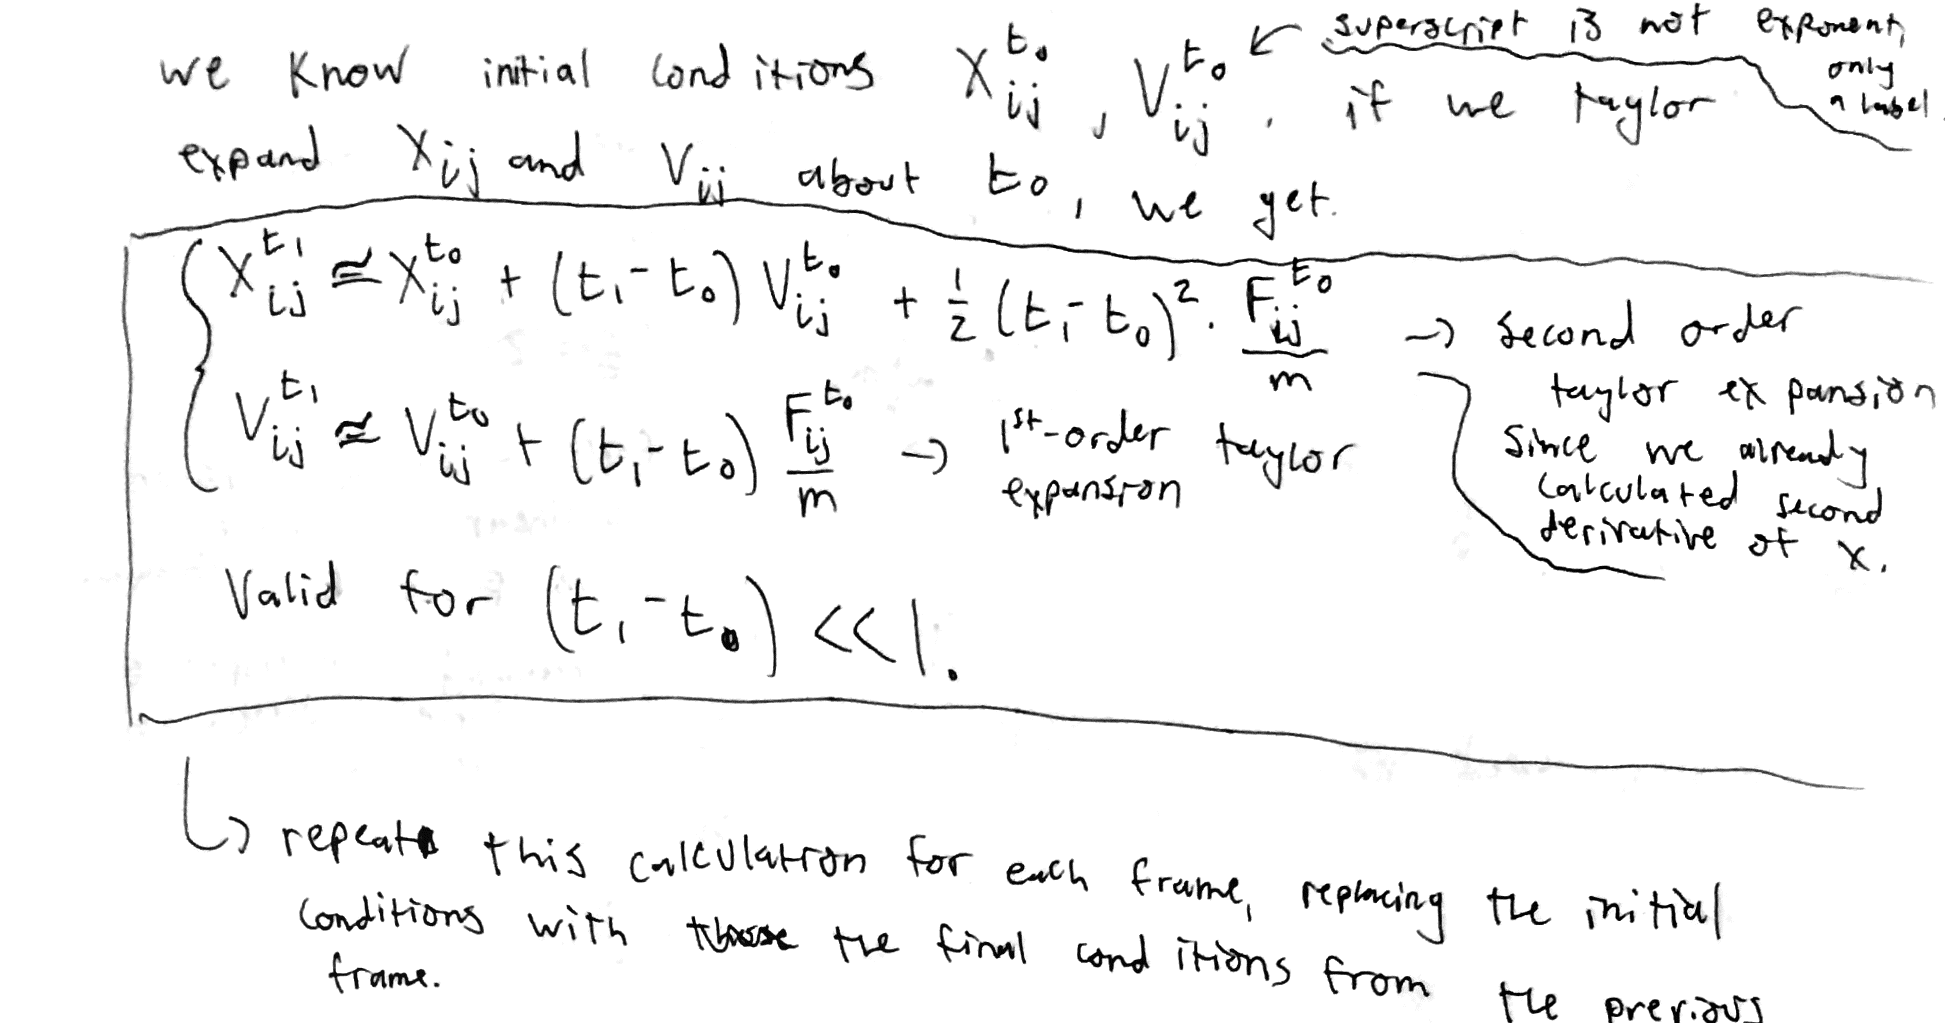 we know initial conditions X_{ij}^{t_0}, V_{ij}^{t_0}. if we taylor
← superscript is not exponent,
only
a label.
expand X_{ij} and V_{ij} about t_0, we get.
X_{ij}^{t_1} ≅ X_{ij}^{t_0} + (t_1 - t_0) V_{ij}^{t_0} + \frac{1}{2} (t_1 - t_0)^2 · \frac{F_{ij}^{t_0}}{m} → second order
taylor expansion
Since we already
calculated second
derivative of x.
V_{ij}^{t_1} ≅ V_{ij}^{t_0} + (t_1 - t_0) \frac{F_{ij}^{t_0}}{m} → 1^{st}-order taylor
expansion
Valid for (t_1 - t_0) << 1.
↳ repeat this calculation for each frame, replacing the initial
conditions with the final conditions from the previous
frame.